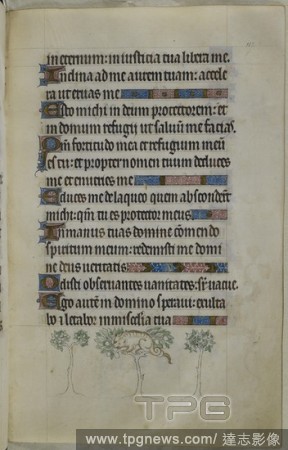 in eternum: in iusticia tua libera me.
Inclina ad me aurem tuam: accele
ra ut eruas me
Esto michi in deum protectorem: et
in domum refugii ut saluū me facias.
Qm̄ fortitudo mea et refugium meū
es tu: et propter nomen tuum deduces
me et enutries me
Educes me de laqueo quem absconderūt
michi: qm̄ tu es protector meus
In manus tuas domine cōmendo
spiritum meum: redemisti me domi
ne deus ueritatis
Odisti obseruantes uanitates: sup̄uacue.
Ego autē in domino speraui: exulta
bo et letabor in misericordia tua
TPG
www.tpgnews.com/ 達志影像